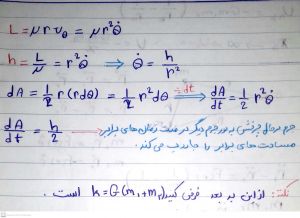 L = μ r v_θ = μ r² θ̇
h = L/μ = r² θ̇ ⇒ θ̇ = h/r²
dA = 1/2 r (r dθ) = 1/2 r² dθ ÷dt ⇒ dA/dt = 1/2 r² θ̇
dA/dt = h/2 جرم در حال چرخش به دور جرم دیگر در مدت زمان های برابر
مساحت های برابر را جاروب می کند.
نکته: از این به بعد فرض کنید h = G(m₁+m₂) است.